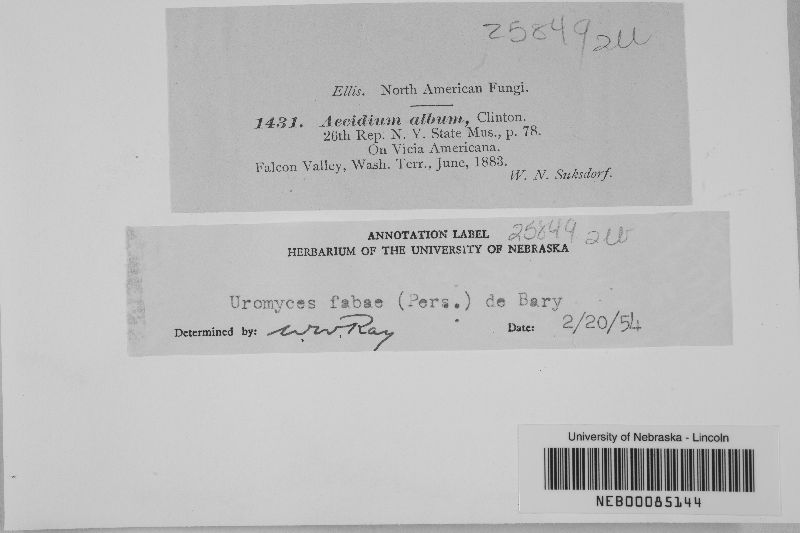 25849 2W
Ellis. North American Fungi.
1431. Aecidium album, Clinton.
26th Rep. N. Y. State Mus., p. 78.
On Vicia Americana.
Falcon Valley, Wash. Terr., June, 1883.
W. N. Suksdorf.
ANNOTATION LABEL 25849 2W
HERBARIUM OF THE UNIVERSITY OF NEBRASKA
Uromyces fabae (Pers.) de Bary
Determined by: W W Ray Date: 2/20/54
University of Nebraska - Lincoln
NEB00085144